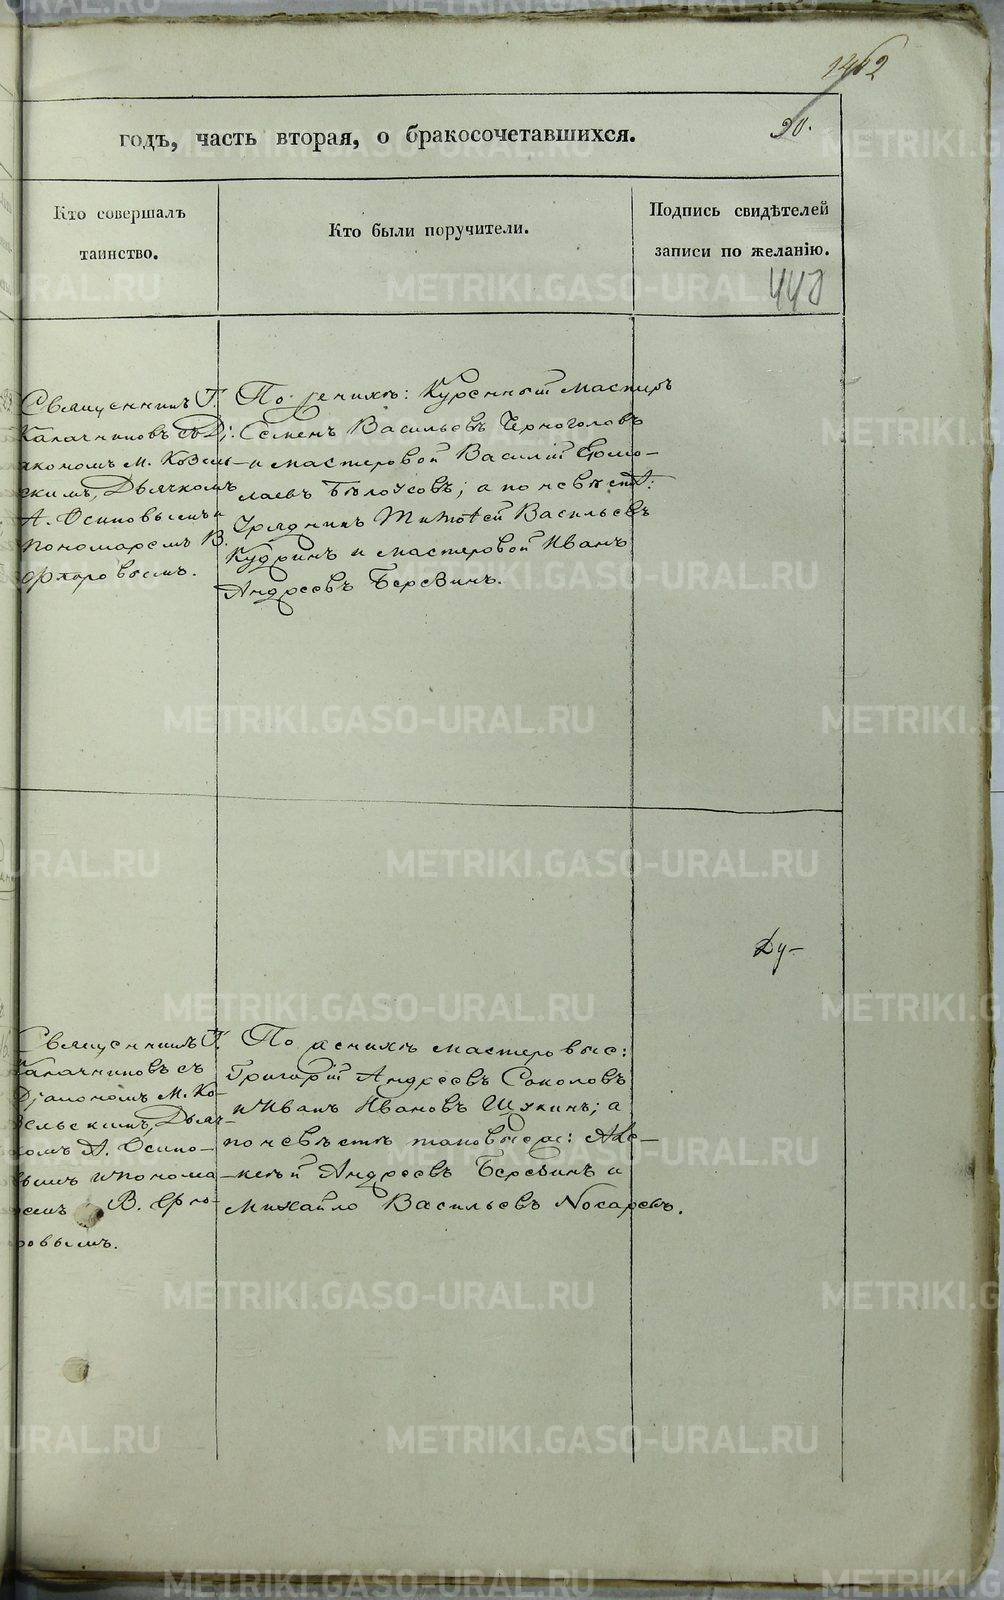 1412
90.
годъ, часть вторая, о бракосочетавшихся.
Кто совершалъ
таинство.
Кто были поручители.
Подпись свидѣтелей
записи по желанію.
440
Священникъ Г.
Калачниковъ съ Ді-
акономъ М. Козель-
скимъ, Дьячкомъ
А. Осиповымъ и
пономаремъ В.
Флоровымъ.
По женихѣ: Куренный мастеръ
Семенъ Васильевъ Черноголовъ
и мастеровой Василій Ермо-
лаевъ Бѣлоусовъ; а по невѣстѣ:
Урядникъ Тимоѳей Васильевъ
Кудринъ и мастеровой Иванъ
Андреевъ Березинъ.
Ду-
Священникъ Г.
Калачниковъ съ
Діакономъ М. Ко-
зельскимъ, Дьяч-
комъ А. Осипо-
вымъ и понома
ремъ В. Фло-
ровымъ.
По женихѣ мастеровые:
Григорій Андреевъ Соколовъ
и Иванъ Ивановъ Щукинъ; а
по невѣстѣ таковые же: Але-
ксѣй Андреевъ Березинъ и
Михайло Васильевъ Носаревъ.
METRIKI.GASO-URAL.RU